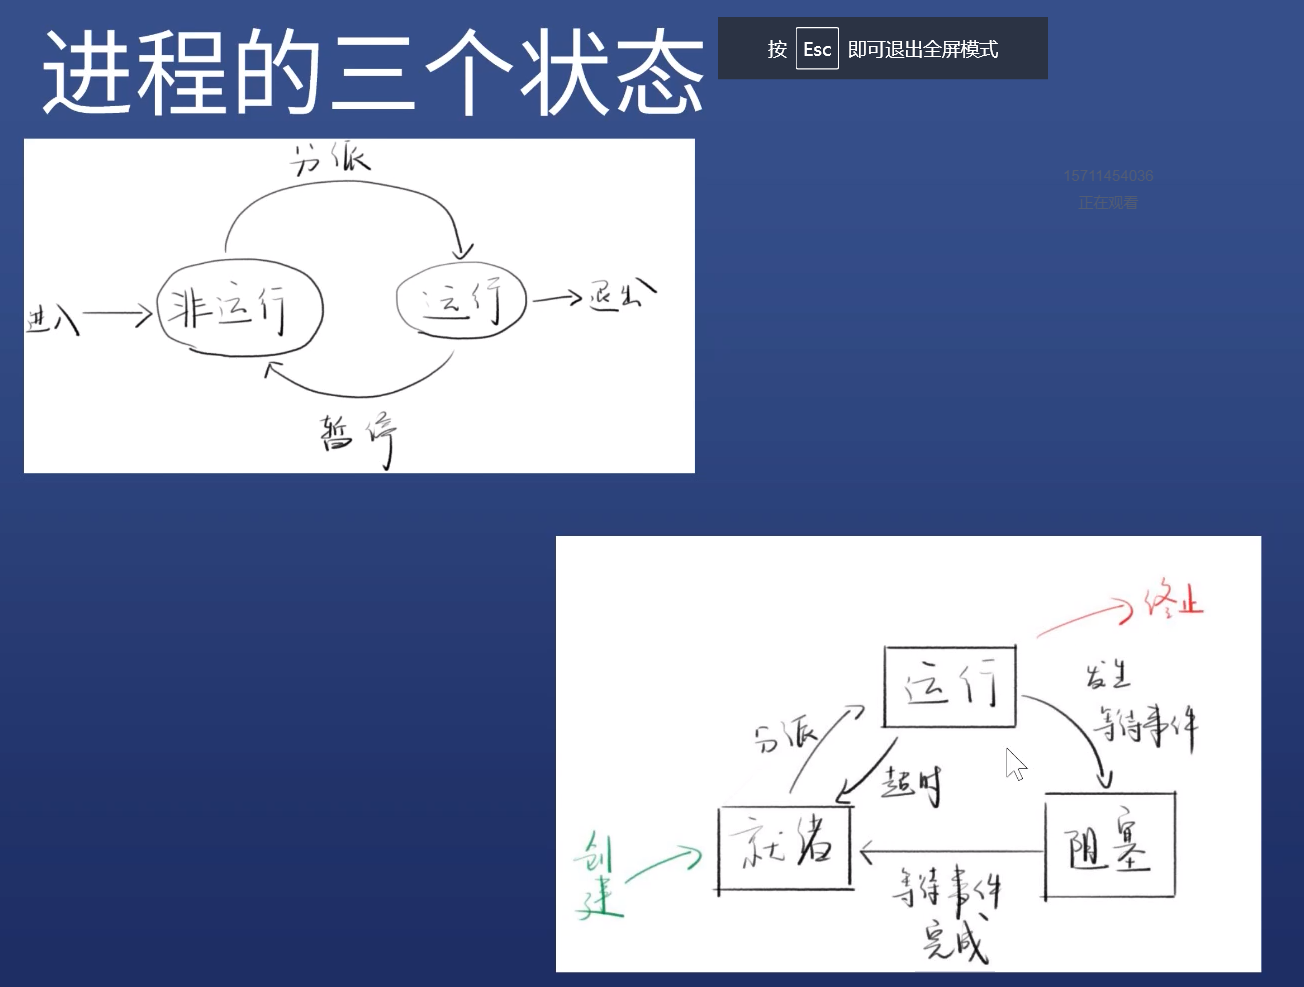 进程的三个状态
按 Esc 即可退出全屏模式
15711454036
正在观看
分派
进入
非运行
运行
退出
暂停
终止
运行
发生
等待事件
分派
超时
创建
就绪
阻塞
等待事件
完成